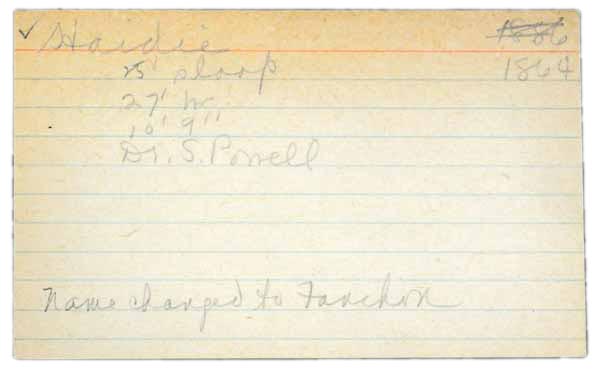 ✓ Haidie 1886
25' sloop 1864
27'
10' 9"
Dr. S. Powell
Name changed to Fanchon